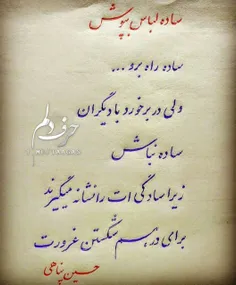 ساده لباس بپوش
ساده راه برو ...
ولی در برخورد با دیگران
ساده نباش
زیرا سادگی ات را نشانه میگیرند
برای درهم شکستن غرورت
حسین پناهی
حرف دلم